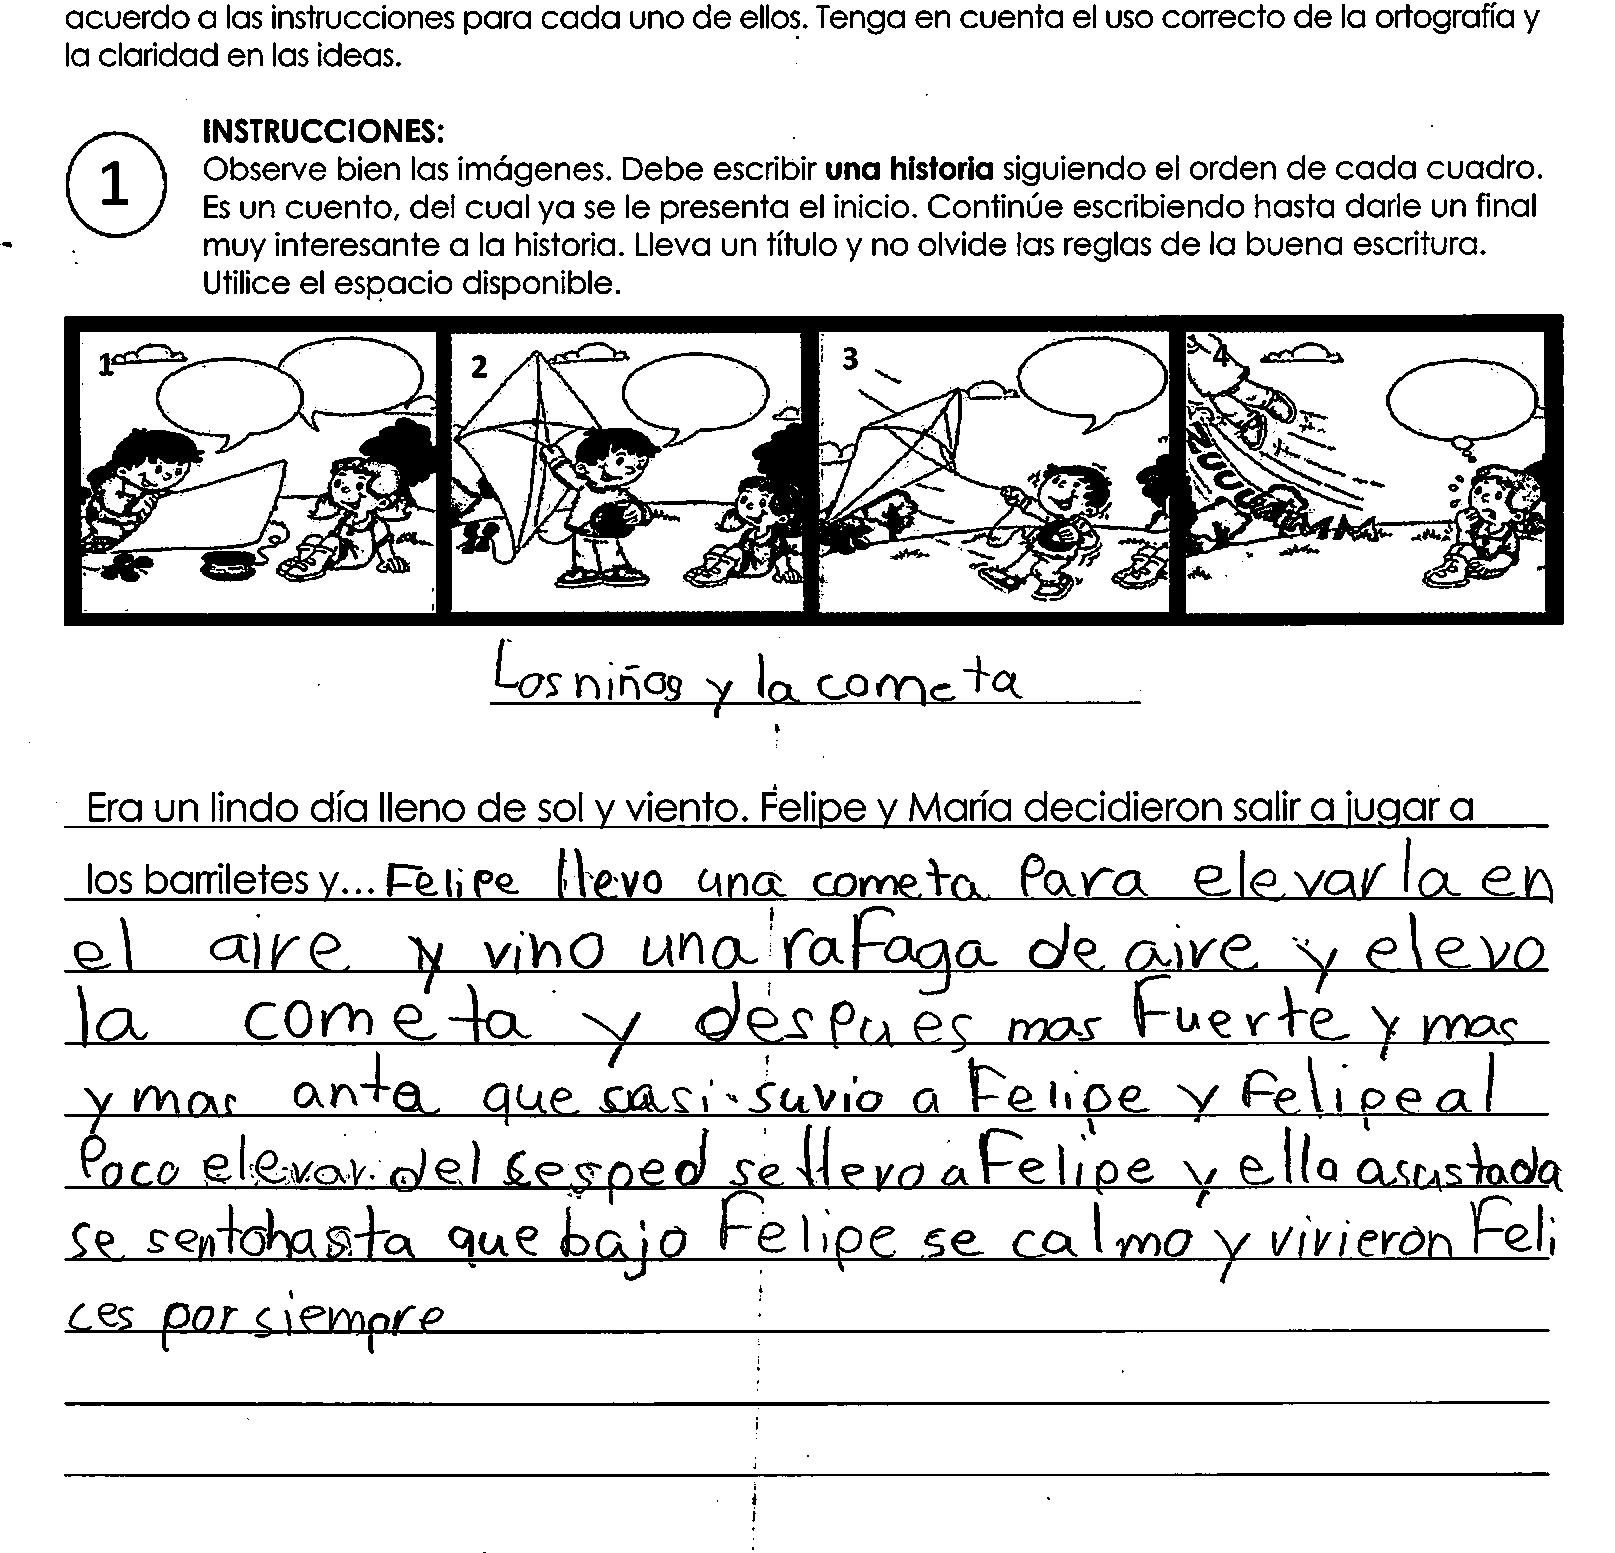 acuerdo a las instrucciones para cada uno de ellos. Tenga en cuenta el uso correcto de la ortografía y
la claridad en las ideas.
1
INSTRUCCIONES:
Observe bien las imágenes. Debe escribir una historia siguiendo el orden de cada cuadro.
Es un cuento, del cual ya se le presenta el inicio. Continúe escribiendo hasta darle un final
muy interesante a la historia. Lleva un título y no olvide las reglas de la buena escritura.
Utilice el espacio disponible.
1 2 3 4
Los niños y la cometa
Era un lindo día lleno de sol y viento. Felipe y María decidieron salir a jugar a
los barriletes y... Felipe llevo una cometa Para elevarla en
el aire y vino una rafaga de aire y elevo
la cometa y despues mas Fuerte y mas
y mas anta que casi suvio a Felipe y Felipe al
Poco elevar del sesped se llevo a Felipe y ella asustada
se sento hasta que bajo Felipe se calmo y vivieron Feli
ces por siempre